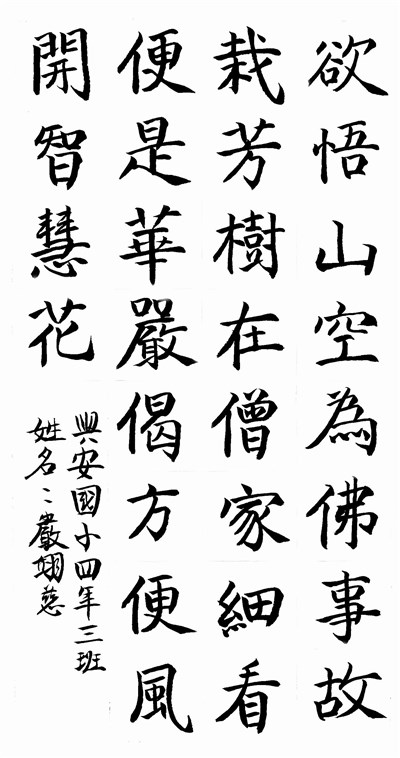 欲悟山空為佛事故
栽芳樹在僧家細看
便是華嚴偈方便風
開智慧花
興安國小四年三班
姓名：嚴翊慈